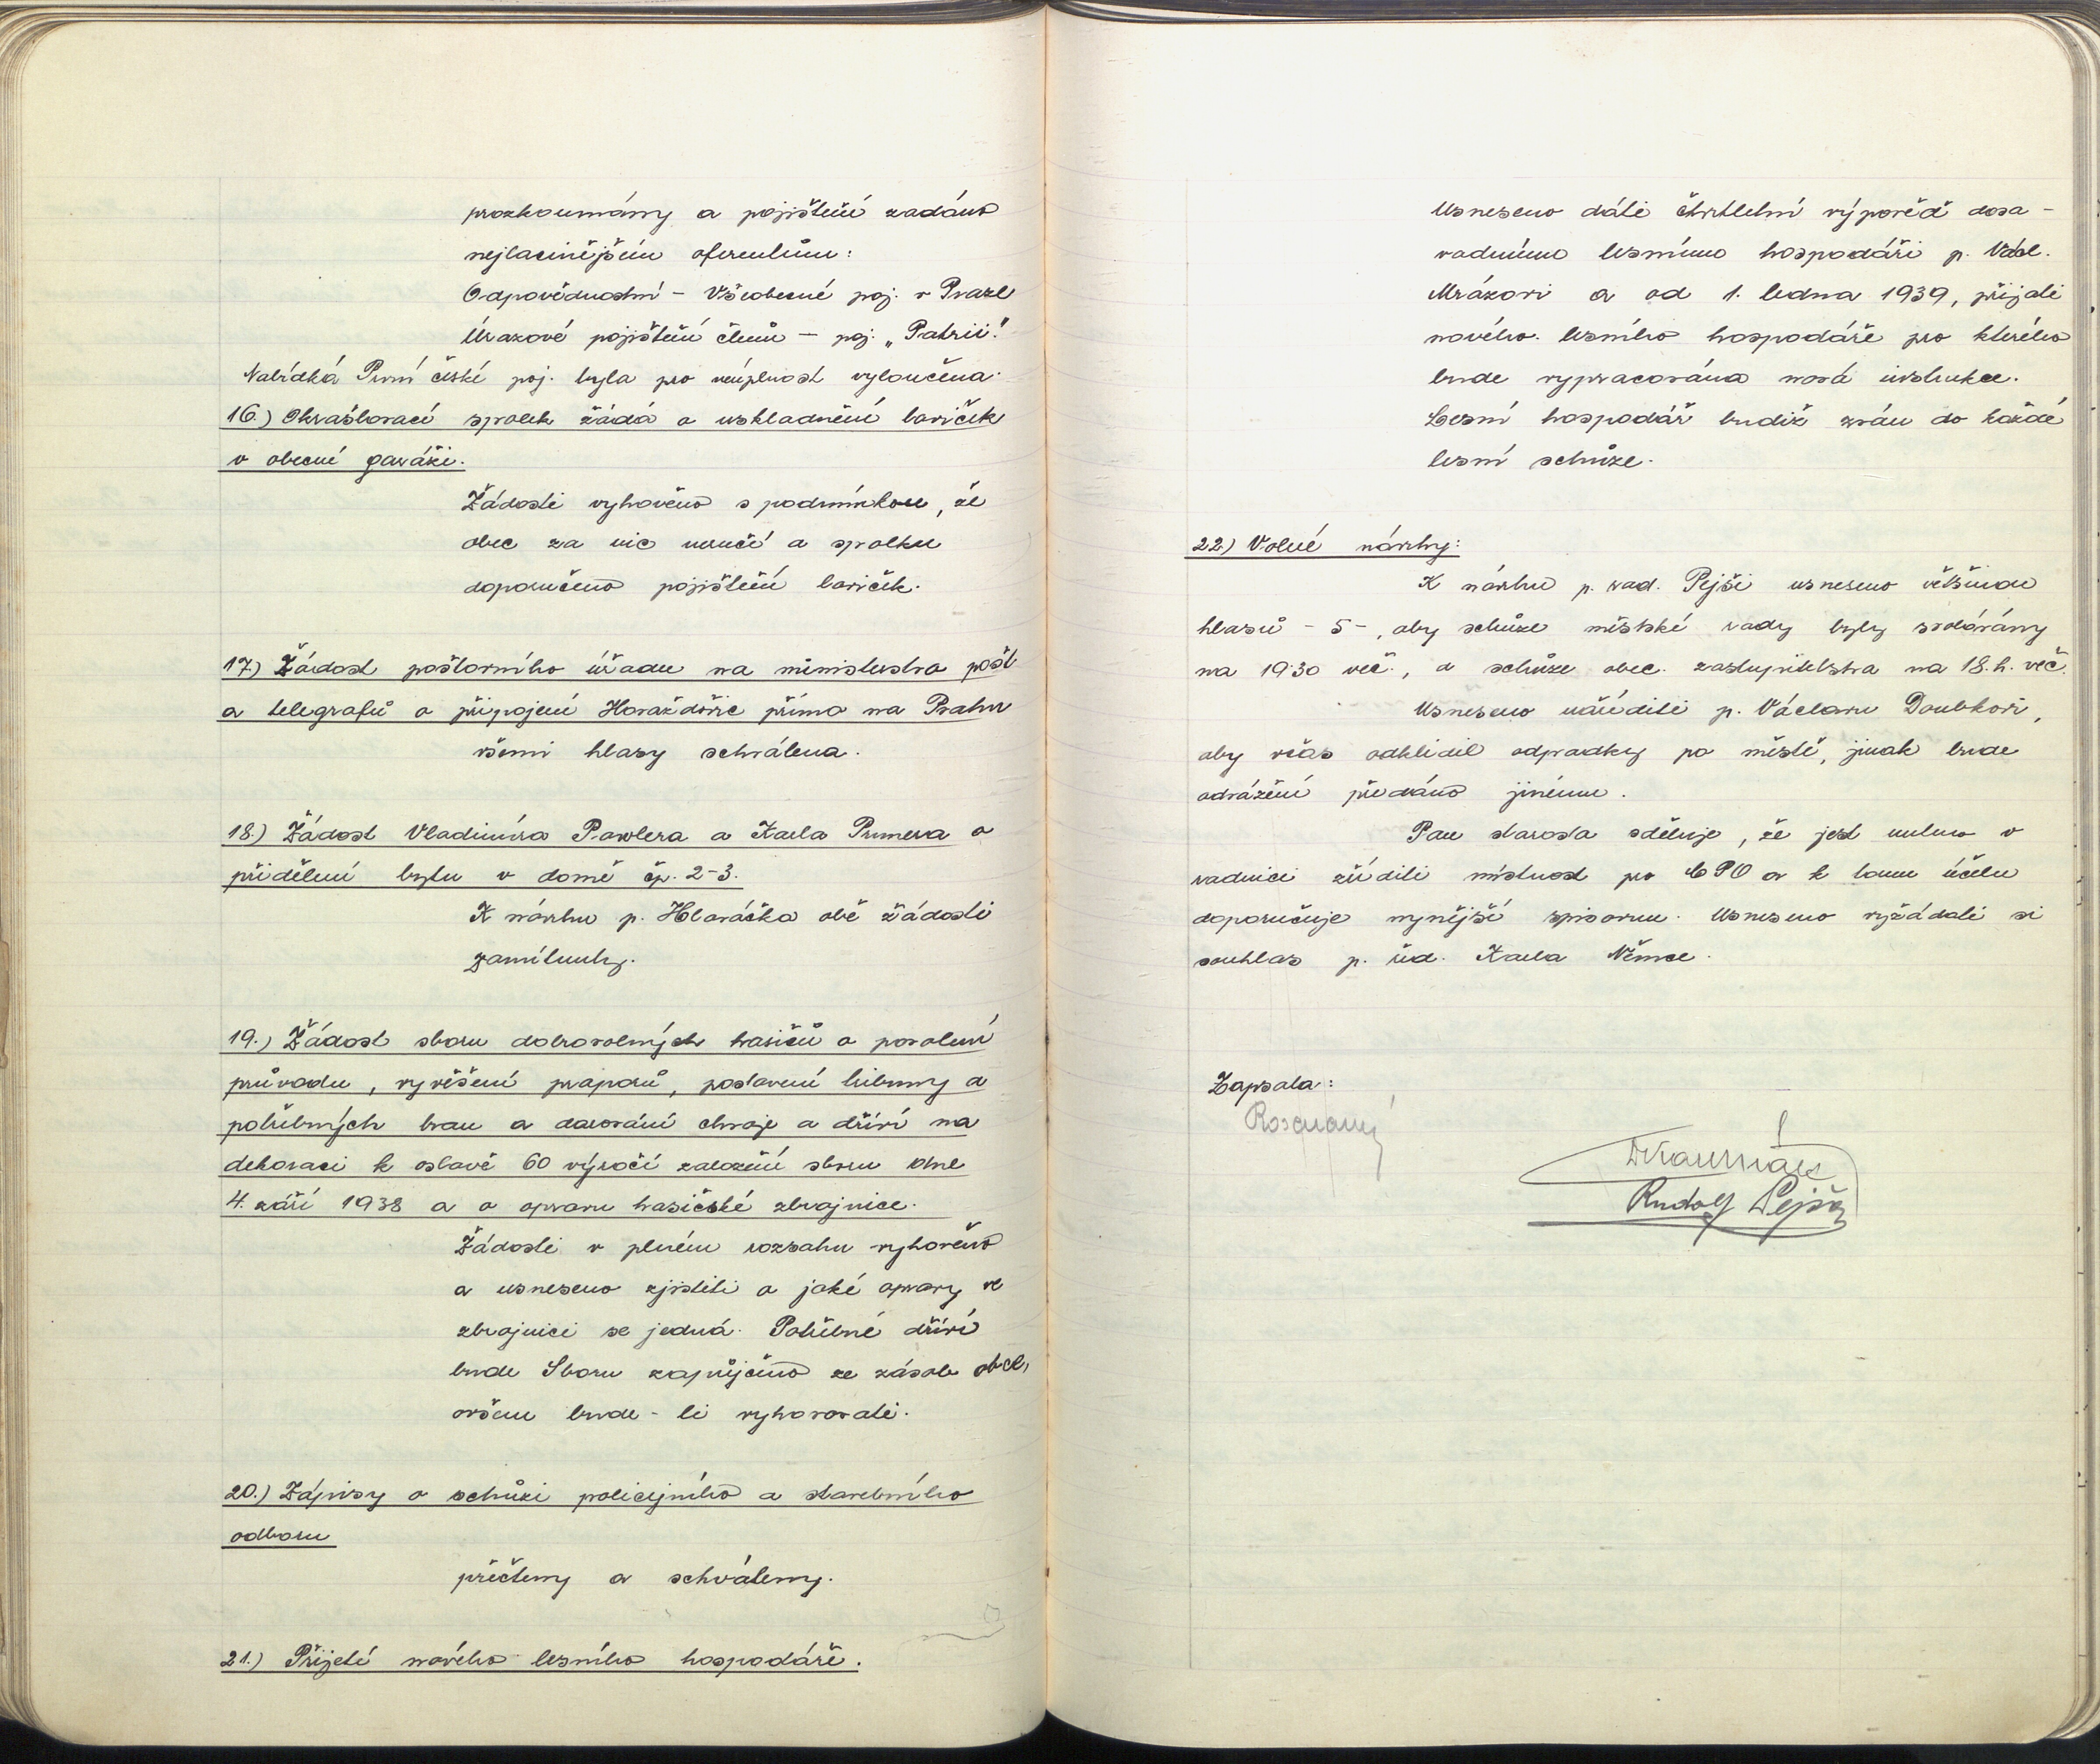 prozkoumány a pojištění zadáno
nejlacinějším oferentům:
Odpovědnostní – Všeobecné poj. v Praze
Úrazové pojištění členů – poj. „Patrii."
Nabídka První české poj. byla pro neúplnost vyloučena.
16.) Okrašlovací spolek žádá o uskladnění laviček
v obecní garáži.
Žádosti vyhověno s podmínkou, že
obec za nic neručí a spolku
doporučeno pojištění laviček.
17.) Žádost poštovního úřadu na ministerstvo pošt
a telegrafů o připojení Horažďovic přímo na Prahu
všemi hlasy schválena.
18.) Žádost Vladimíra Pawlera a Karla Prunera o
přidělení bytu v domě čp. 2-3.
K návrhu p. Hlaváčka obě žádosti
zamítnuty.
19.) Žádost sboru dobrovolných hasičů o povolení
průvodu, vyvěšení praporů, postavení tribuny a
potřebných bran a darování chvoje a dříví na
dekoraci k oslavě 60 výročí založení sboru dne
4. září 1938 a o opravu hasičské zbrojnice.
Žádosti v plném rozsahu vyhověno
a usneseno zjistiti o jaké opravy ve
zbrojnici se jedná. Potřebné dříví
bude Sboru zapůjčeno ze zásob obce,
ovšem bude-li vyhovovati.
20.) Zápisy o schůzi policejního a stavebního
odboru
přečteny a schváleny.
21.) Přijetí nového lesního hospodáře.
Usneseno dáti čtvrtletní výpověď dosa-
vadnímu lesnímu hospodáři p. Václ.
Mrázovi a od 1. ledna 1939, přijati
nového lesního hospodáře pro kterého
bude vypracována nová instrukce.
Lesní hospodář budiž zván do každé
lesní schůze.
22.) Volné návrhy:
K návrhu p. rad. Pejši usneseno většinou
hlasů - 5 -, aby schůze městské rady byly svolávány
na 19'30 več., a schůze obec. zastupitelstva na 18. h. več.
Usneseno naříditi p. Václavu Doubkovi,
aby včas odklidil odpadky po městě, jinak bude
odvážení předáno jinému.
Pan starosta sděluje, že jest nutno v
radnici zříditi místnost pro CPO a k tomu účelu
doporučuje nynější spisovnu. Usneseno vyžádati si
souhlas p. úd. Karla Němce.
Zapsala:
Rudolf Pejša